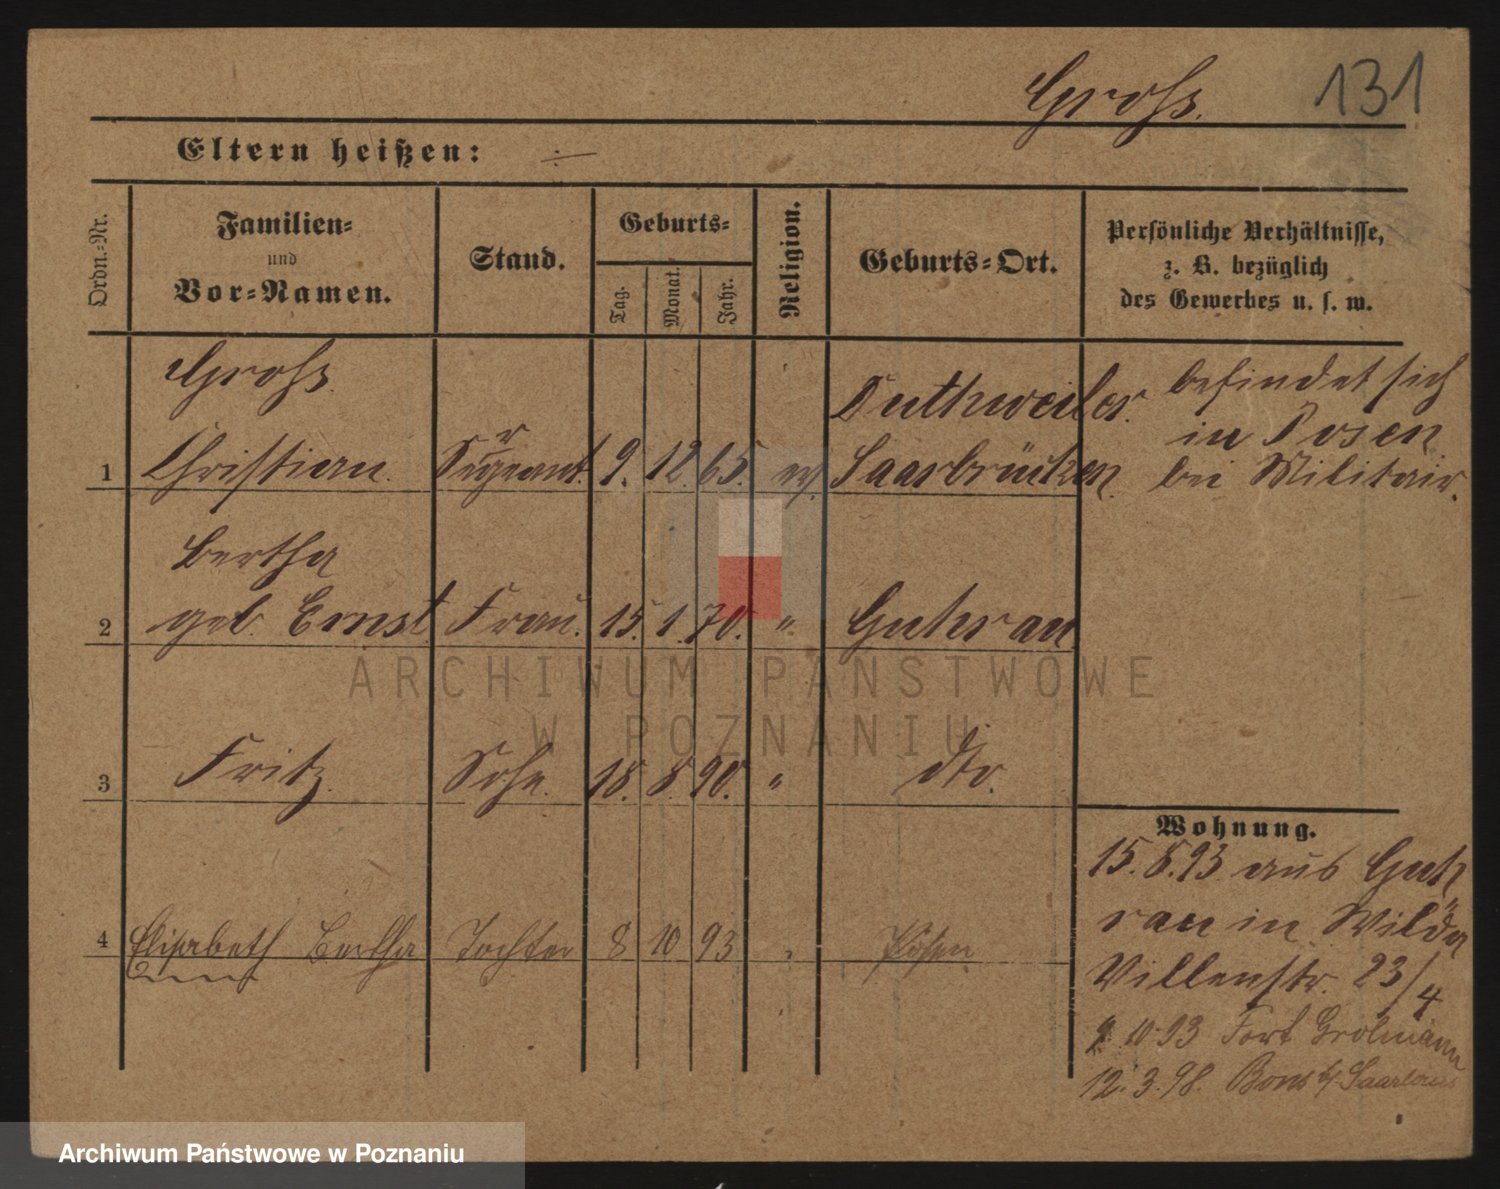 Groß.
131
Eltern heißen: ÷
Ordn.-Nr.
Familien-
und
Vor-Namen.
Stand.
Geburts-
Tag.
Monat.
Jahr.
Religion.
Geburts-Ort.
Persönliche Verhältnisse,
z. B. bezüglich
des Gewerbes u. s. w.
Groß
Duttweiler
befindet sich
in Posen
1 Christian Sergeant. 9. 12 65. ev. Saarbrücken bei Militair.
Bertha
2 geb. Ernst Frau. 15. 1. 70. " Guhrau
3 Fritz Sohn. 18. 8. 90. " dto.
Wohnung.
15. 8. 93 aus Guh
rau in Wilda
4 Elisabeth Bertha Tochter 8 10 93 " Posen
Villenstr. 23/4
9. 10 93 Fort Grolmann
12. 3. 98. Bous b/ Saarlouis
ARCHIWUM PAŃSTWOWE
W POZNANIU
Archiwum Państwowe w Poznaniu